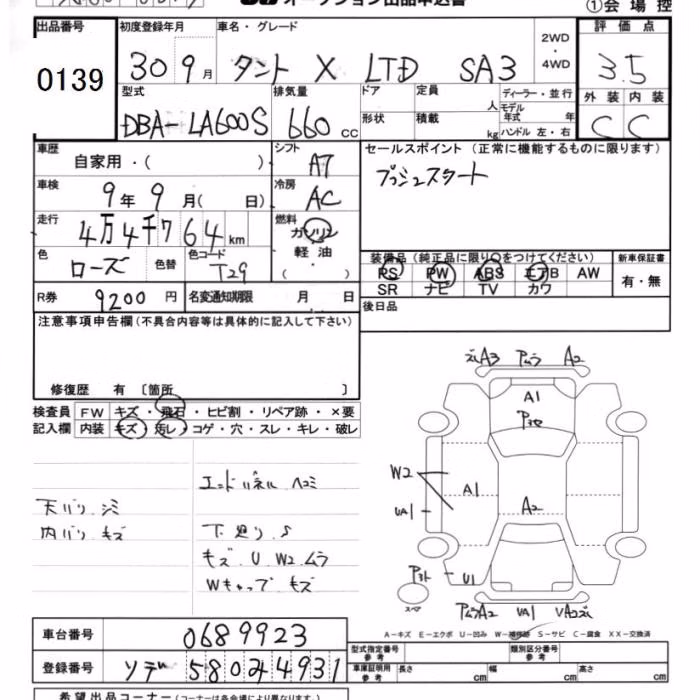 ①会場控
出品番号
0139
初度登録年月
30 9月
車名・グレード
タント X LTD SA3
2WD・4WD
評価点
3.5
外装 内装
C C
型式
DBA-LA600S
排気量
660 cc
ドア
形状
定員
人
積載
kg
ディーラー・並行
モデル年式 年
ハンドル 左・右
車歴
自家用・( )
シフト
AT
セールスポイント (正常に機能するものに限ります)
プッシュスタート
車検
9年9月( 日)
冷房
AC
走行
4万4千764km
燃料
ガソリン
軽油
( ・ )
色
ローズ
色替
色コード
T29
装備品 (純正品に限り○をつけてください)
PS PW ABS エアB AW
SR ナビ TV カワ
新車保証書
有・無
R券 9200円
名変通知期限 月 日
後日品
注意事項申告欄 (不具合内容等は具体的に記入して下さい)
修復歴 有 〔箇所 〕
検査員記入欄
FW キズ・飛石・ヒビ割・リペア跡・×要
内装 キズ・汚レ・コゲ・穴・スレ・キレ・破レ
エンドパネル ヘコミ
天バリ シミ
内バリ キズ
下廻り S
キズ U W2 ムラ
Wキャップ キズ
A3 Pムラ A2
A1
W2
UA1
A1
A2
U1
スペア
PムラA2 UA1
A-キズ E-エクボ U-凹み W-補修跡 S-サビ C-腐食 XX-交換済
車台番号
0689923
登録番号
ソデ 580 4931
型式指定番号
参考
類別区分番号
参考
車庫証明用
参考
長さ cm 幅 cm 高さ cm
希望出品コーナー (コーナーは各会場により異なります。)